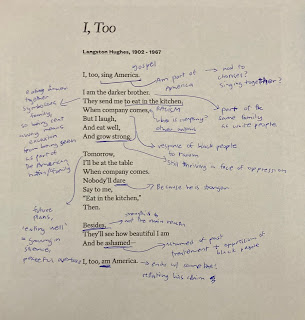 I, Too
Langston Hughes, 1902 - 1967
gospel
I, too, sing America.
Am part of
America
nod to
choruses?
singing together?
I am the darker brother.
They send me to eat in the kitchen
When company comes,
But I laugh,
And eat well,
And grow strong.
eating dinner
together
symbolises
family,
so being sent
away means
from being seen
as part of
the American
part of the
same family
as white people
RACISM
"who is company?"
response of black people
to racism
still thriving in face of oppression
Tomorrow,
I'll be at the table
When company comes.
Nobody'll dare
Say to me,
"Eat in the kitchen,"
Then.
Because he is stronger
future
plans,
'eating well'
= growing in
silence
peaceful
Besides,
not the main reason
They'll see how beautiful I am
And be ashamed—
ashamed of past
treatment + oppression of
black people
I, too, am America.
his claim